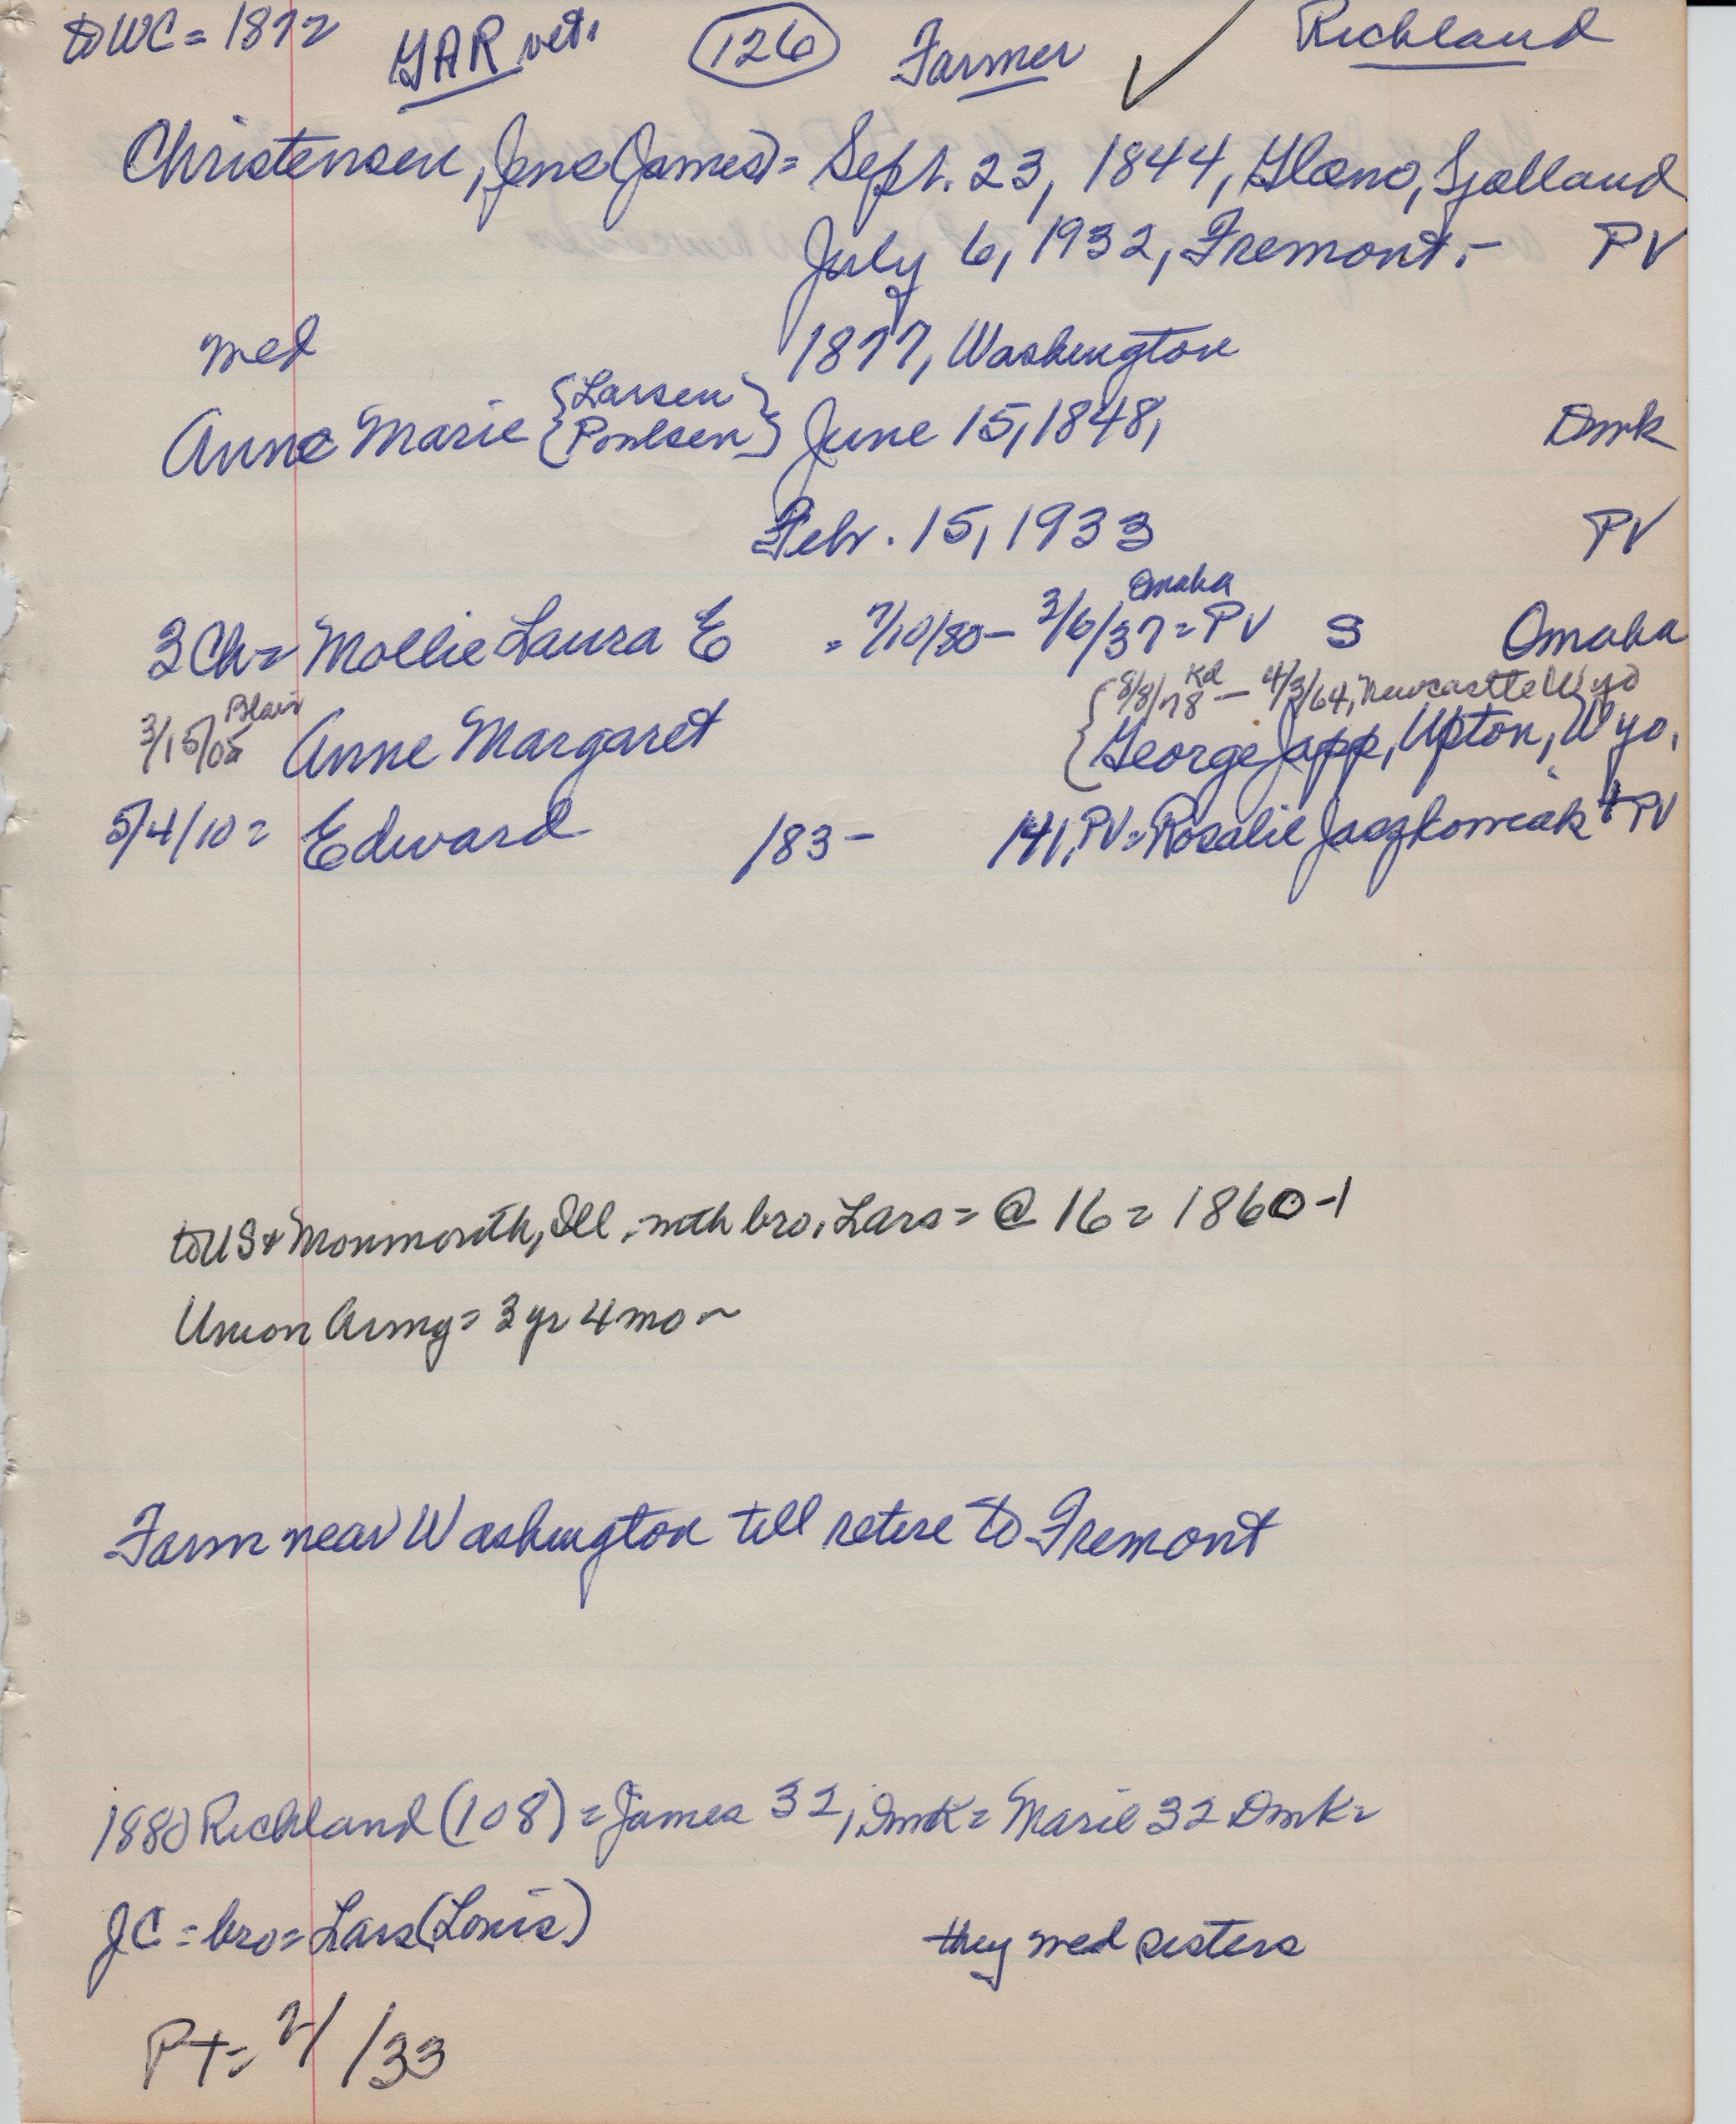 to WC = 1872 GAR vet. 126 Farmer ✓ Richland
Christensen, Jens (James) = Sept. 23, 1844, Glæno, Sjælland
July 6, 1932, Fremont. - PV
med 1877, Washington
Larsen
Anne Marie { Poulsen } June 15, 1848, Dmk
Febr. 15, 1933 PV
Omaha
3 Ch = Mollie Laura E = 7/10/80 - 3/6/37 = PV S Omaha
8/8/78 Kd - 4/3/64, Newcastle Wyo
3/15/05 Blair Anne Margaret { George Japp, Upton, Wyo.
5/4/10 = Edward /83 - /41, PV = Rosalie + PV
to US + Monmouth, Ill. with bro. Lars = @ 16 = 1860-1
Union Army = 3 yr 4 mo
Farm near Washington till retire to Fremont
1880 Richland (108) = James 32, Dmk = Marie 32 Dmk =
JC = bro = Lars (Louis) they med sisters
PT = 2/ /33